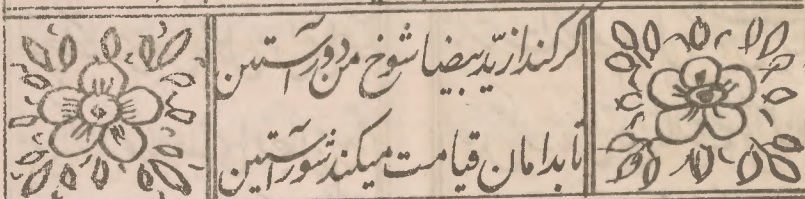 گر کند از ید بیضا شوخ من دور آستین
تا بدامان قیامت میکند شور آستین